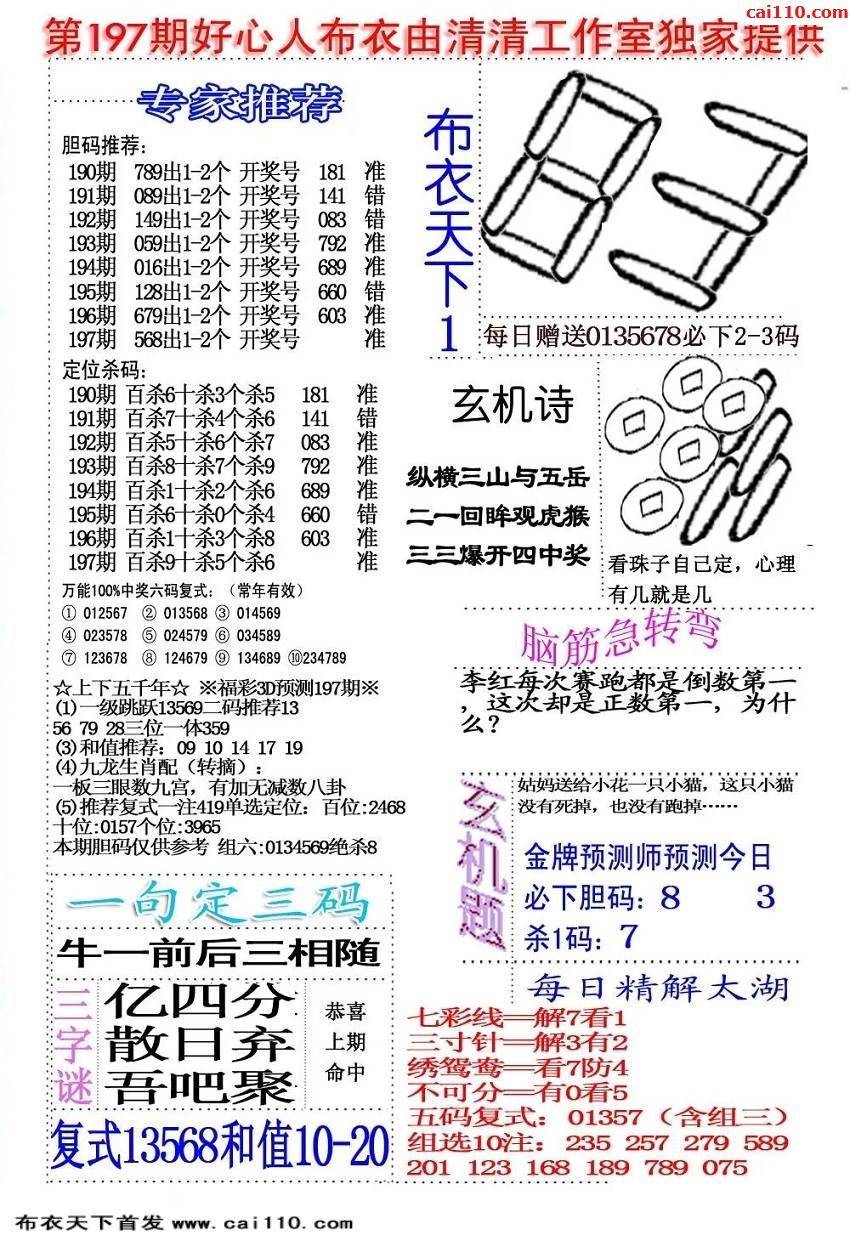 cai110.com
第197期好心人布衣由清清工作室独家提供
专家推荐
胆码推荐:
190期 789出1-2个 开奖号 181 准
191期 089出1-2个 开奖号 141 错
192期 149出1-2个 开奖号 083 错
193期 059出1-2个 开奖号 792 准
194期 016出1-2个 开奖号 689 准
195期 128出1-2个 开奖号 660 错
196期 679出1-2个 开奖号 603 准
197期 568出1-2个 开奖号 准
定位杀码:
190期 百杀6十杀3个杀5 181 准
191期 百杀7十杀4个杀6 141 错
192期 百杀5十杀6个杀7 083 准
193期 百杀8十杀7个杀9 792 准
194期 百杀1十杀2个杀6 689 准
195期 百杀6十杀0个杀4 660 错
196期 百杀1十杀3个杀8 603 准
197期 百杀9十杀5个杀6 准
万能100%中奖六码复式:(常年有效)
① 012567 ② 013568 ③ 014569
④ 023578 ⑤ 024579 ⑥ 034589
⑦ 123678 ⑧ 124679 ⑨ 134689 ⑩234789
☆上下五千年☆ ※福彩3D预测197期※
(1)一级跳跃13569二码推荐13
56 79 28三位一体359
(3)和值推荐:09 10 14 17 19
(4)九龙生肖配(转摘):
一板三眼数九宫,有加无减数八卦
(5)推荐复式一注419单选定位:百位:2468
十位:0157个位:3965
本期胆码仅供参考 组六:0134569绝杀8
一句定三码
牛一前后三相随
三字谜
亿四分
散日弃
吾吧聚
恭喜
上期
命中
复式13568和值10-20
布衣天下1
每日赠送0135678必下2-3码
玄机诗
纵横三山与五岳
二一回眸观虎猴
三三爆开四中奖
看珠子自己定,心理
有几就是几
脑筋急转弯
李红每次赛跑都是倒数第一
,这次却是正数第一,为什
么?
玄机题
姑妈送给小花一只小猫,这只小猫
没有死掉,也没有跑掉……
金牌预测师预测今日
必下胆码:8 3
杀1码:7
每日精解太湖
七彩线═解7看1
三寸针═解3有2
绣鸳鸯═看7防4
不可分═有0看5
五码复式:01357(含组三)
组选10注:235 257 279 589
201 123 168 189 789 075
布衣天下首发 www.cai110.com